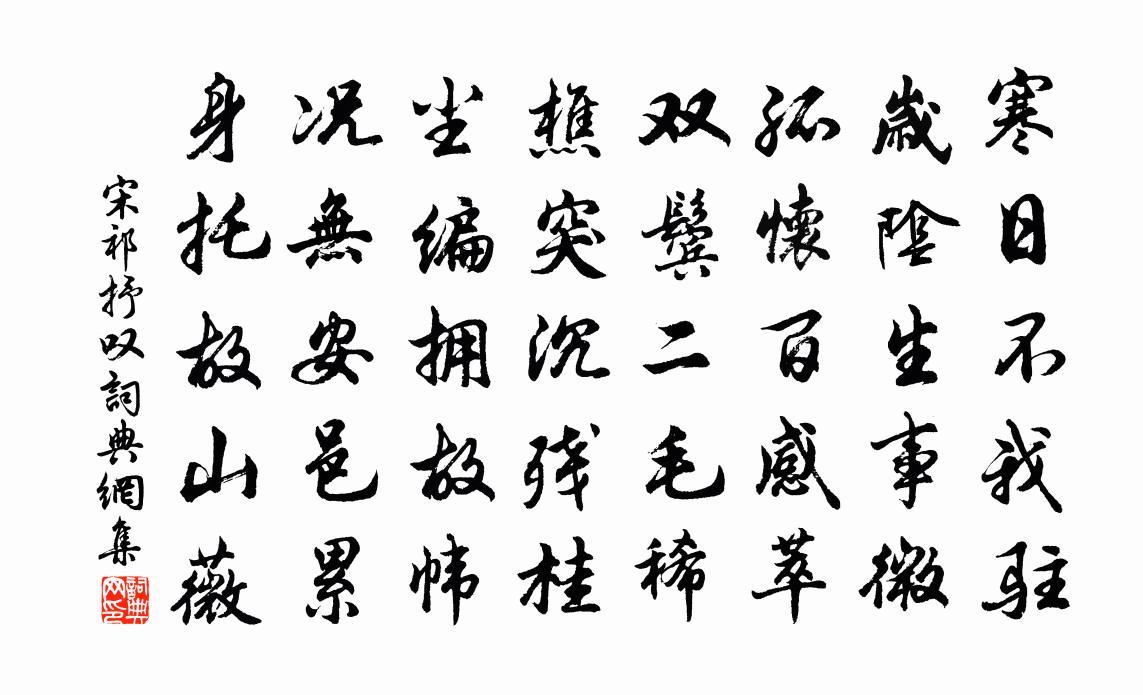 寒日不我駐
歲陰生事微
孤懷百感萃
双鬓二毛稀
樵突沉残桂
尘编拥故帏
况無安邑累
身托故山薇
宋祁抒叹詞典網集
詞典网印